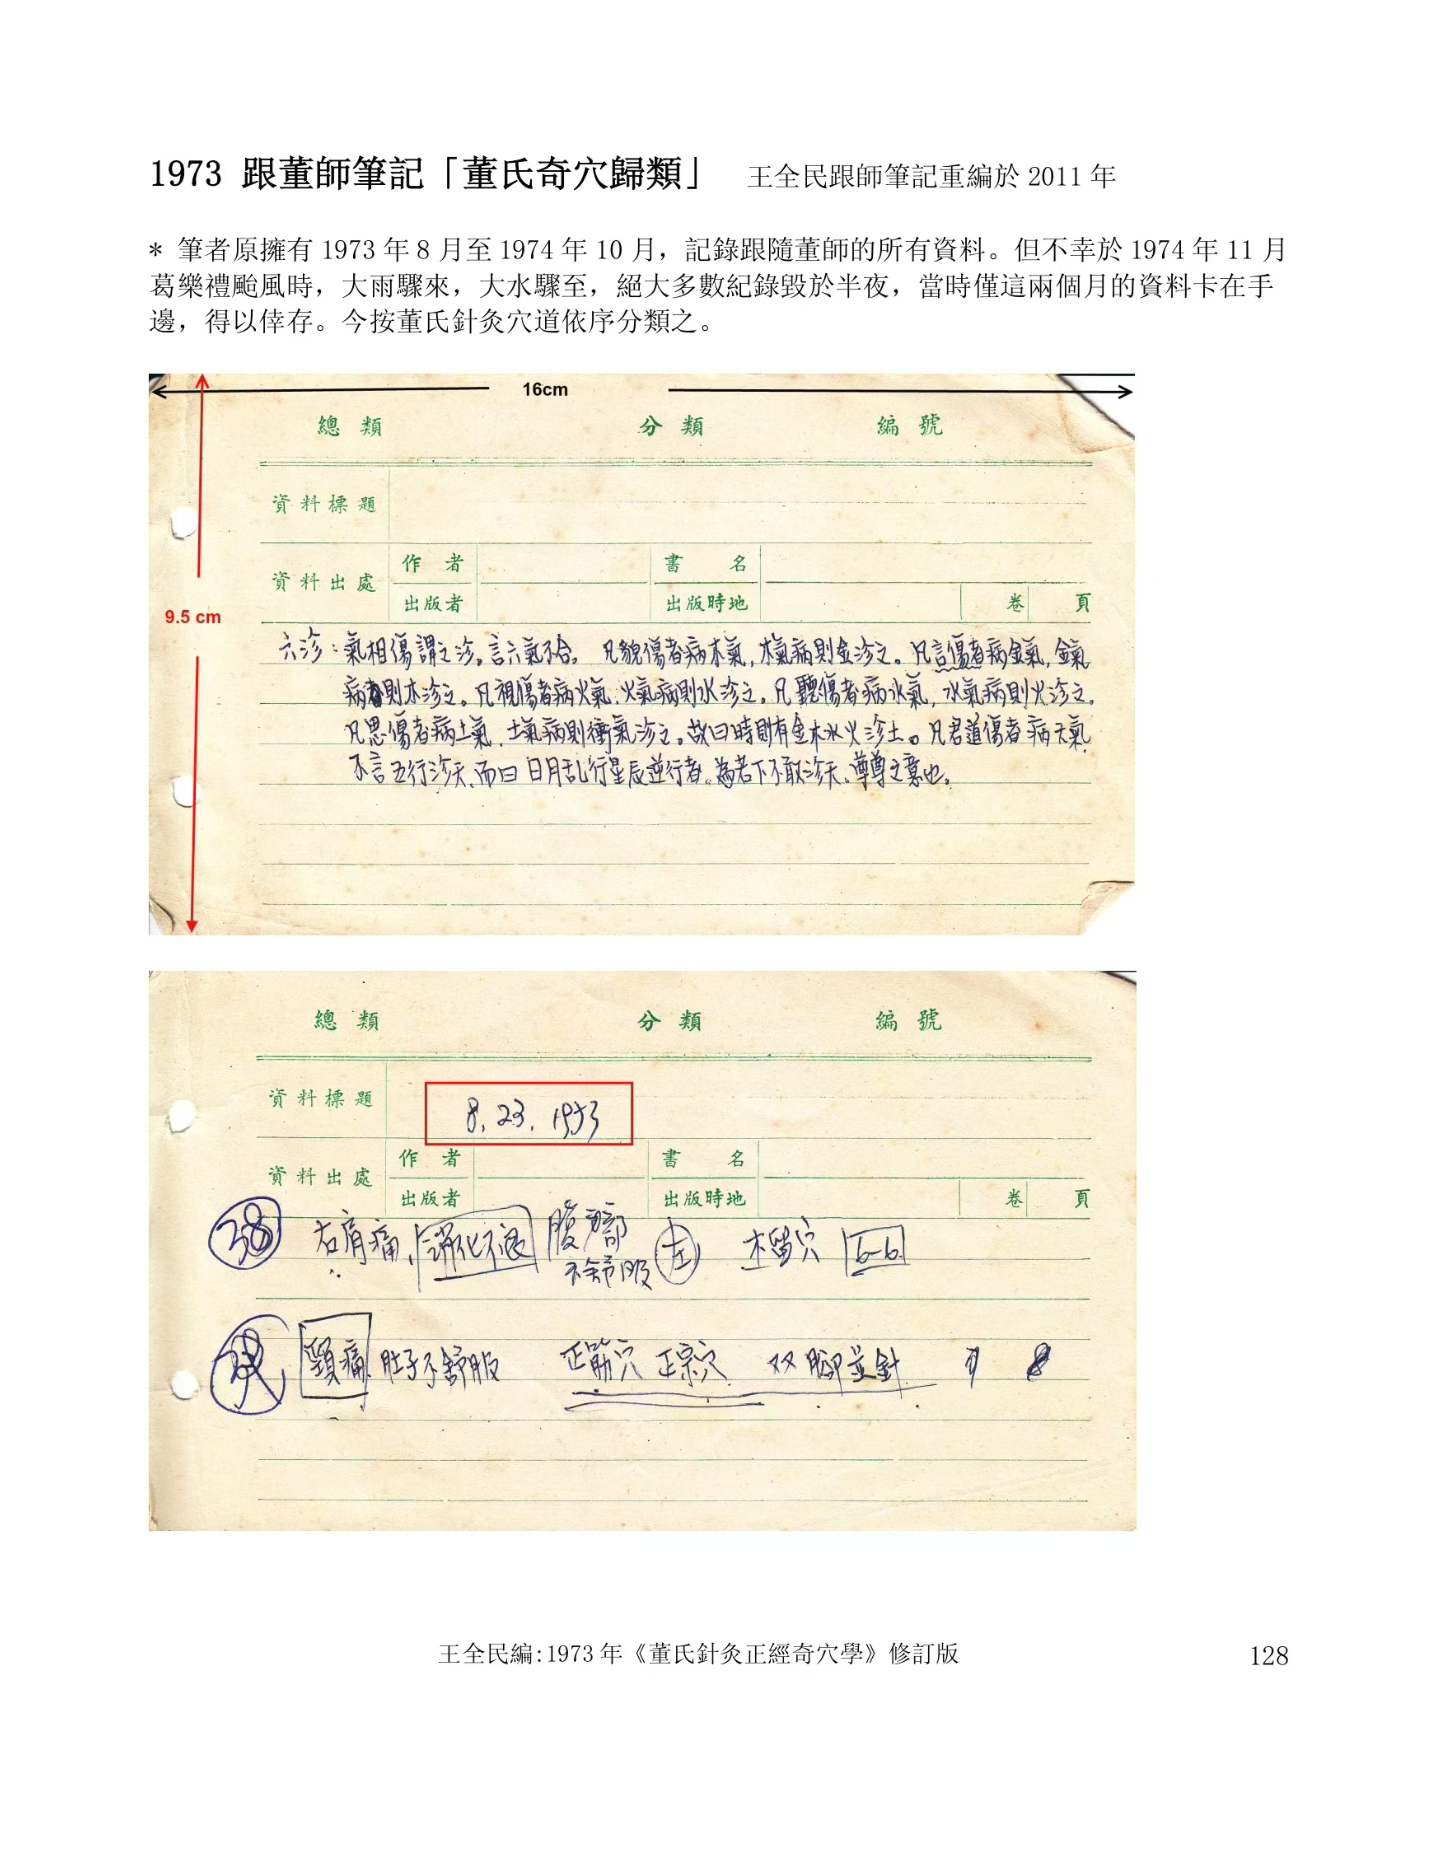 1973 跟董師筆記「董氏奇穴歸類」 王全民跟師筆記重編於 2011 年
* 筆者原擁有 1973 年 8 月至 1974 年 10 月，記錄跟隨董師的所有資料。但不幸於 1974 年 11 月
葛樂禮颱風時，大雨驟來，大水驟至，絕大多數紀錄毀於半夜，當時僅這兩個月的資料卡在手
邊，得以倖存。今按董氏針灸穴道依序分類之。
16cm
總類 分類 編號
資料標題
資料出處 作者 書名
出版者 出版時地 卷 頁
9.5 cm
六沴：氣相傷謂之沴。言六氣不合。凡貌傷者病木氣，木氣病則金沴之。凡言傷者病金氣，金氣
病則木沴之。凡視傷者病火氣，火氣病則水沴之。凡聽傷者病水氣，水氣病則火沴之。
凡思傷者病土氣，土氣病則衝氣沴之。故曰時則有金木水火沴土。凡君道傷者病天氣
不言五行沴天，而曰日月乱行星辰逆行者。為若下不敢沴天、尊尊之意也。
總類 分類 編號
資料標題 8.23.1973
資料出處 作者 書名
出版者 出版時地 卷 頁
38 右肩痛，消化不良 腹部 左 木留穴 6-6
不舒服
頸痛 肚子不舒服 正筋穴 正宗穴 双腳並針
王全民編:1973 年《董氏針灸正經奇穴學》修訂版 128